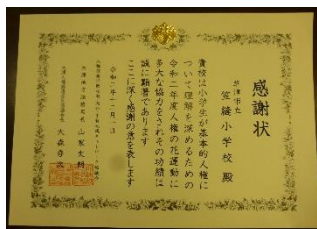 感謝状
草津市立
笠縫小学校 殿
貴校は小学生が基本的人権に
ついて理解を深めるための
令和二年度人権の花運動に
多大な協力をされその功績は
誠に顕著であります
ここに深く感謝の意を表します
令和二年十一月
大津地方法務局長
大津人権擁護委員協議会長